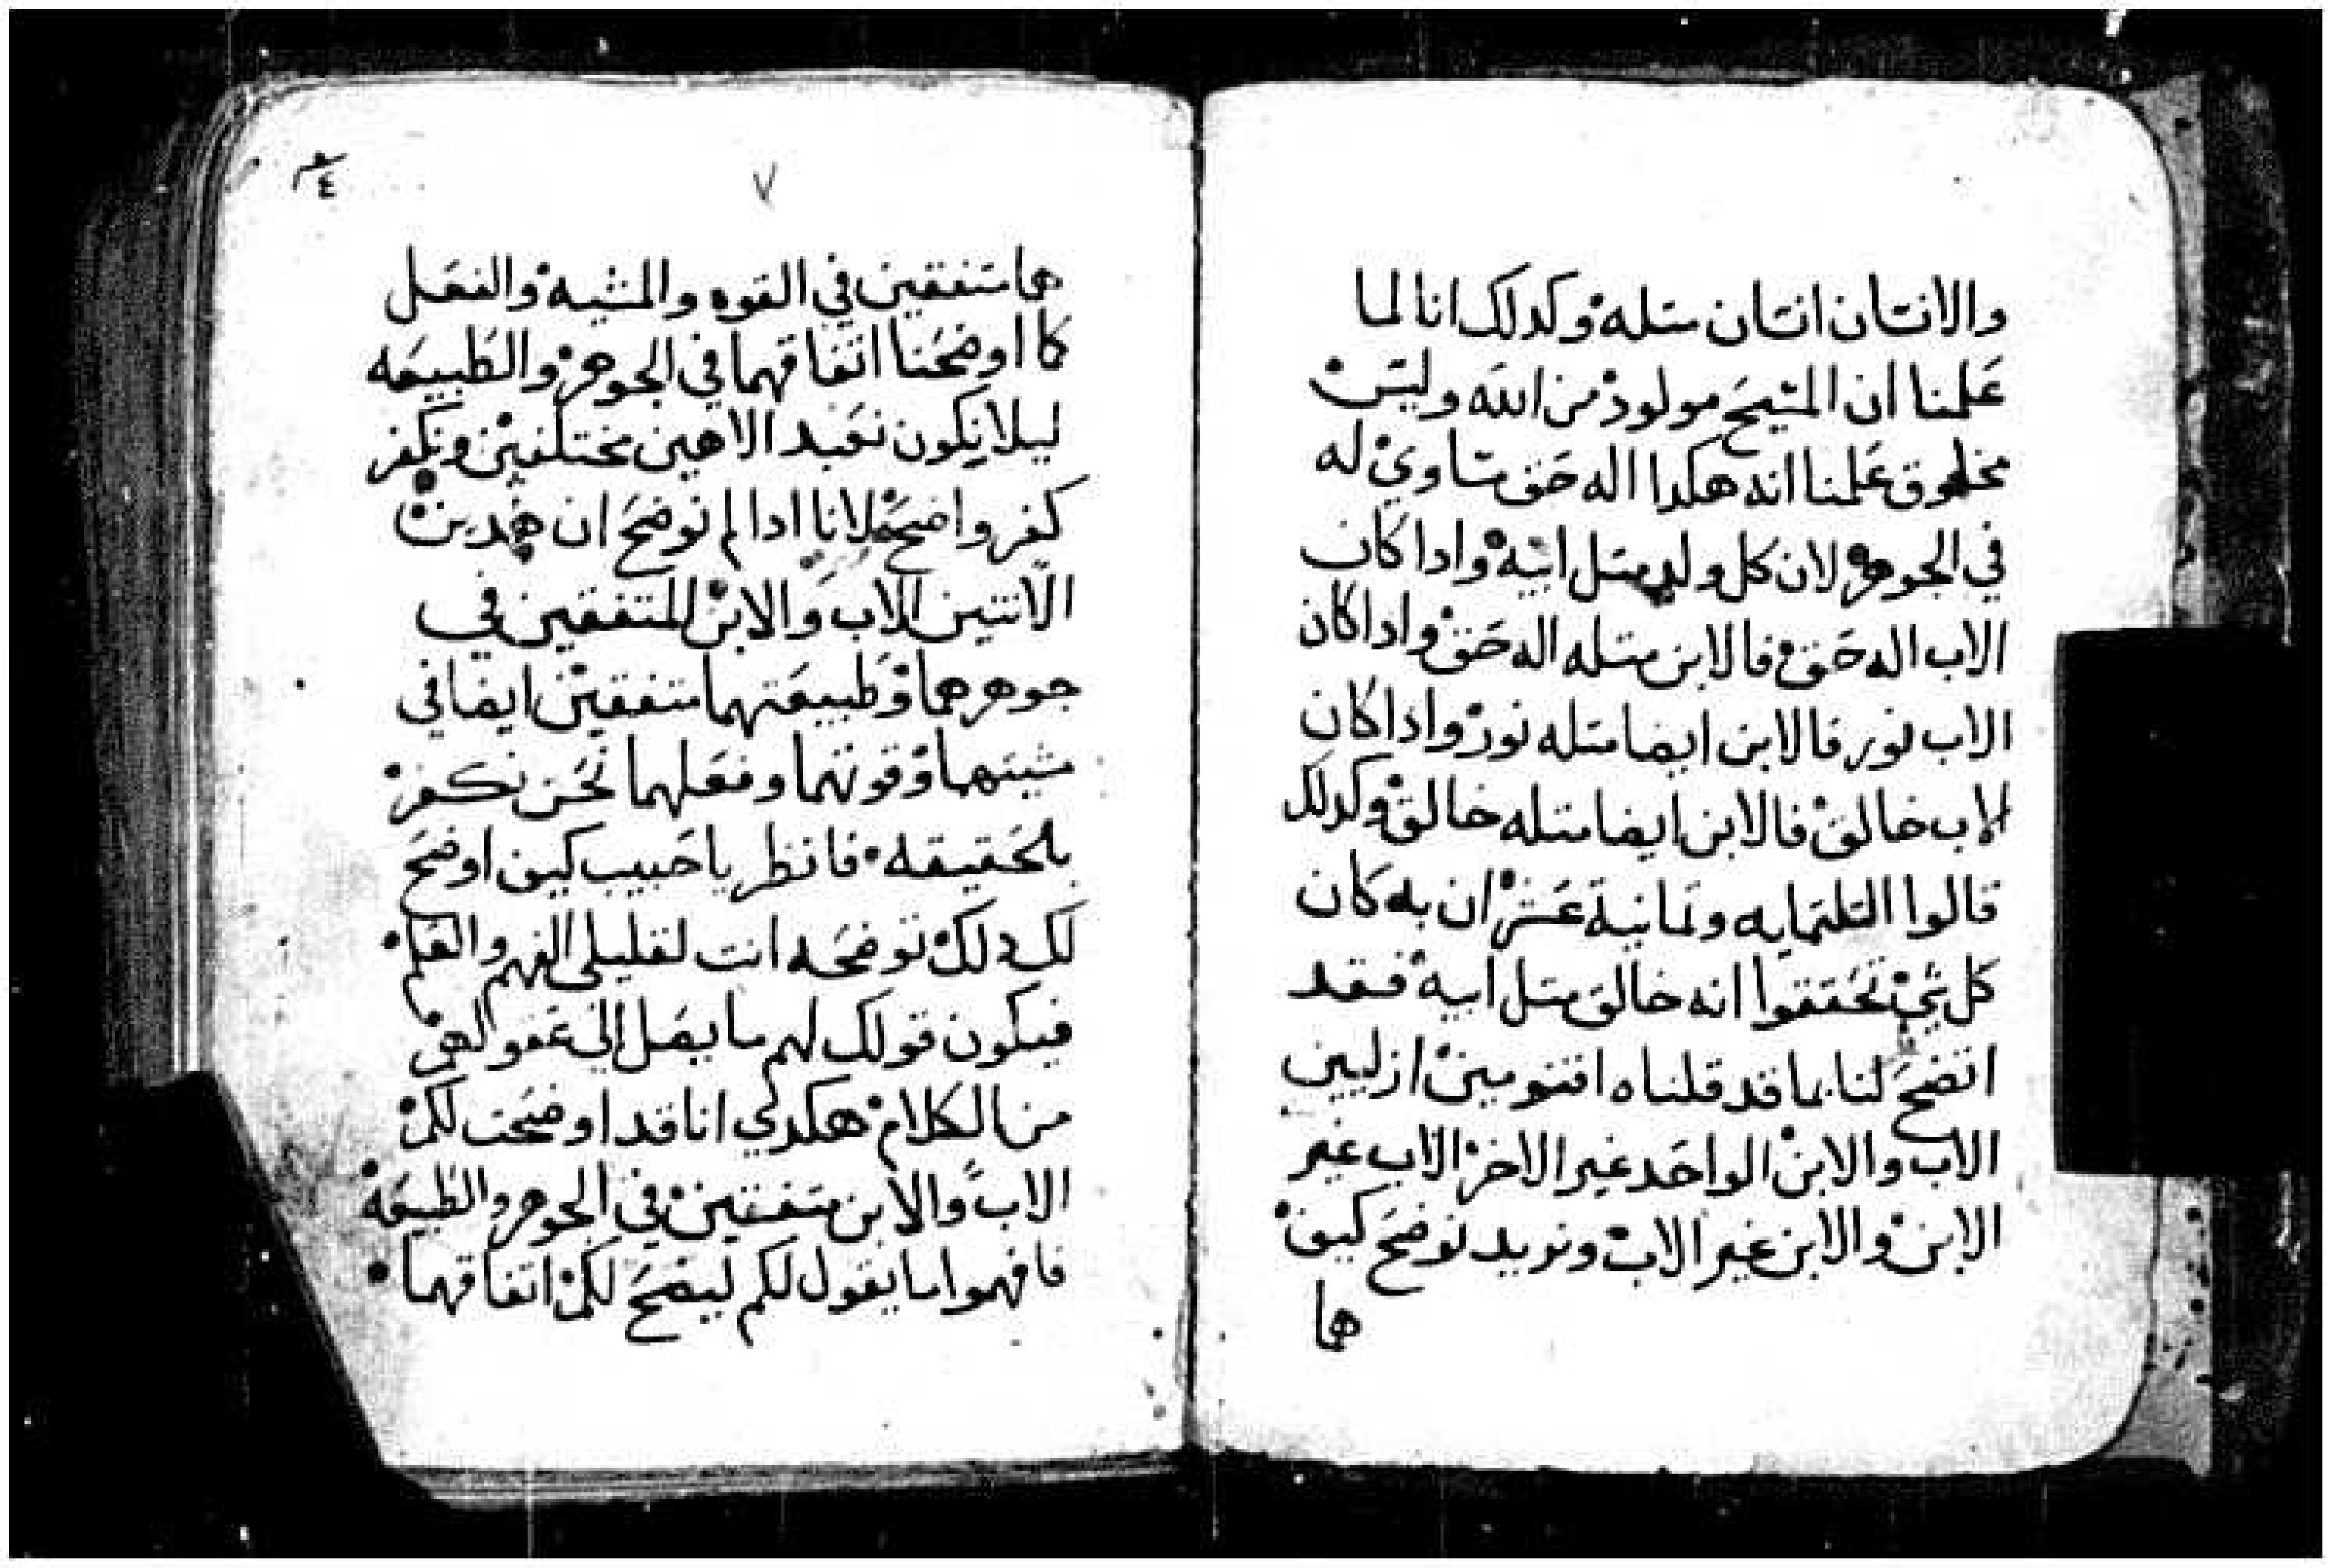 والانسان انسان متله وكدلك انا لما
علمنا ان المسيح مولود من الله وليس
مخلوق علمنا انه هكدا اله حق مساوي له
في الجوهر لان كل ولد متل ابيه واداكان
الاب اله حق فالابن متله اله حق واداكان
الاب نور فالابن ايضا متله نور واداكان
الاب خالق فالابن ايضا متله خالق وكدلك
قالوا التلتمايه وتمانية عشر ان به كان
كل شي تحققوا انه خالق متل ابيه فقد
اتضح لنا بما قد قلناه اقنومين ازليين
الاب والابن الواحد غير الاخر الاب غير
الابن والابن غير الاب ونريد نوضح كيف
هما
٧
٤
هما متفقين في القوه والمشيه والفعل
كما اوضحنا اتفاقهما في الجوهر والطبيعه
ليلا نكون نعبد الاهين مختلفين ونكفر
كفر واضح لانا ادا لم نوضح ان هدين
الاتنين الاب والابن المتفقين في
جوهرهما وطبيعتهما متفقين ايضا في
مشيتهما وقوتهما وفعلهما نحن نكفر
بالحقيقه فانظر يا حبيب كيف اوضح
لك دلك توضحه انت لقليلي الفهم والعلم
فيكون قولك لهم ما يصل الي عقولهم
من الكلام هكدي انا قد اوضحت لكم
الاب والابن متفقين في الجوهر والطبيعه
فافهموا ما يقول لكم ليضح لكم اتفاقهما